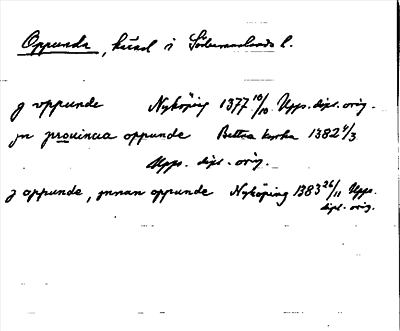 Oppunda, härad i Södermanlands l.
j oppunde Nyköping 1377 10/10 Upps. dipl. orig.
jn prouincia oppunde Bettna kyrka 1382 4/3
Upps. dipl. orig.
j oppunde, jnnan oppunde Nyköping 1383 26/11 Upps.
dipl. orig.